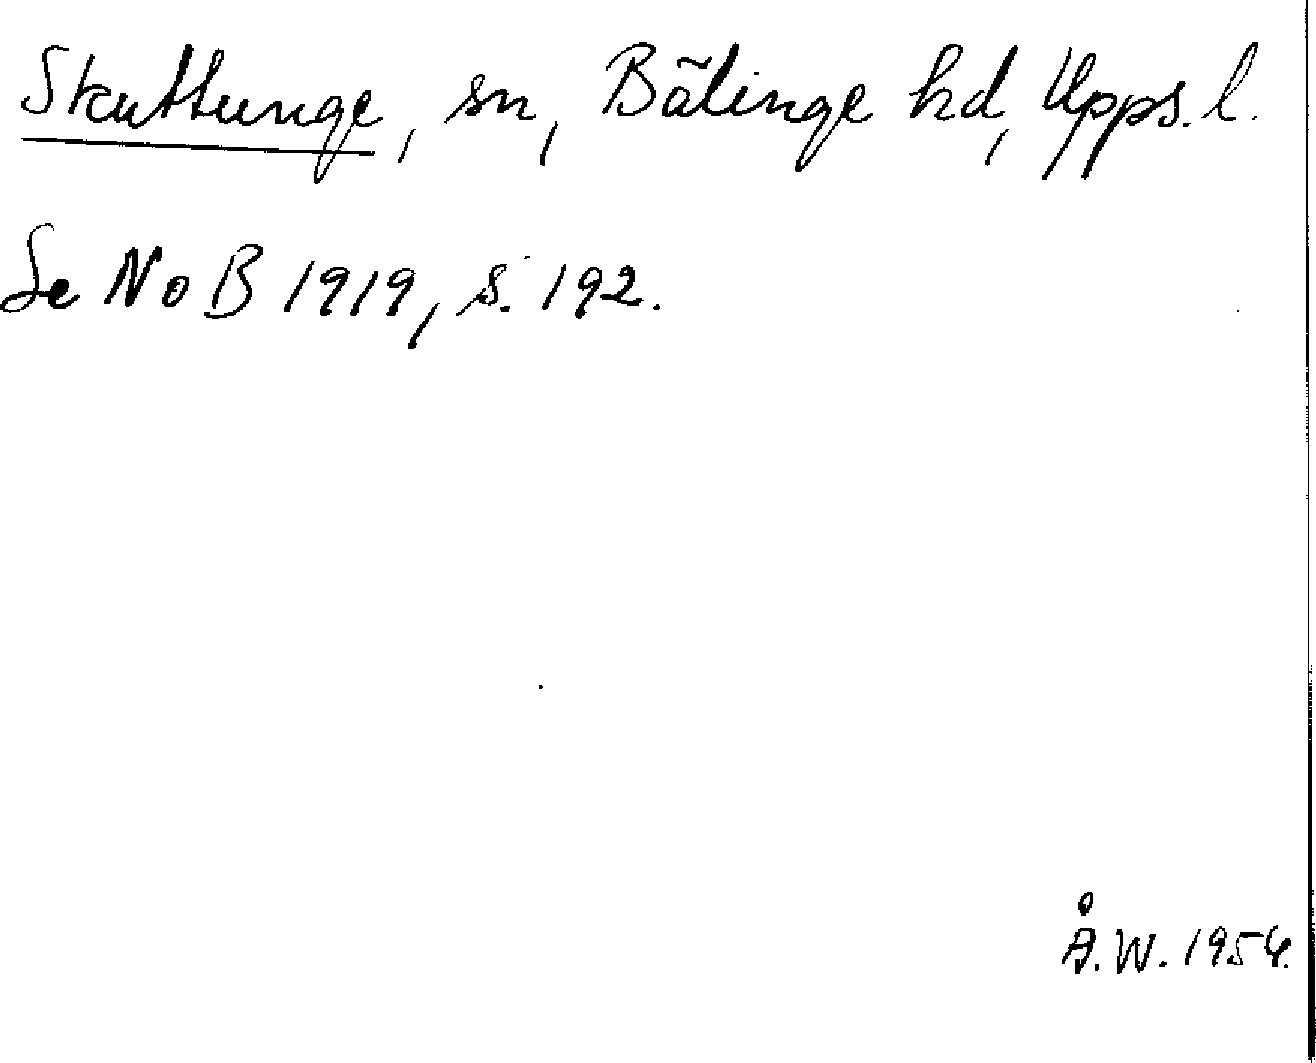 Skuttunge, sn, Bälinge hd, Upps. l.
Se NoB 1919, s. 192.
Å.W. 1954.